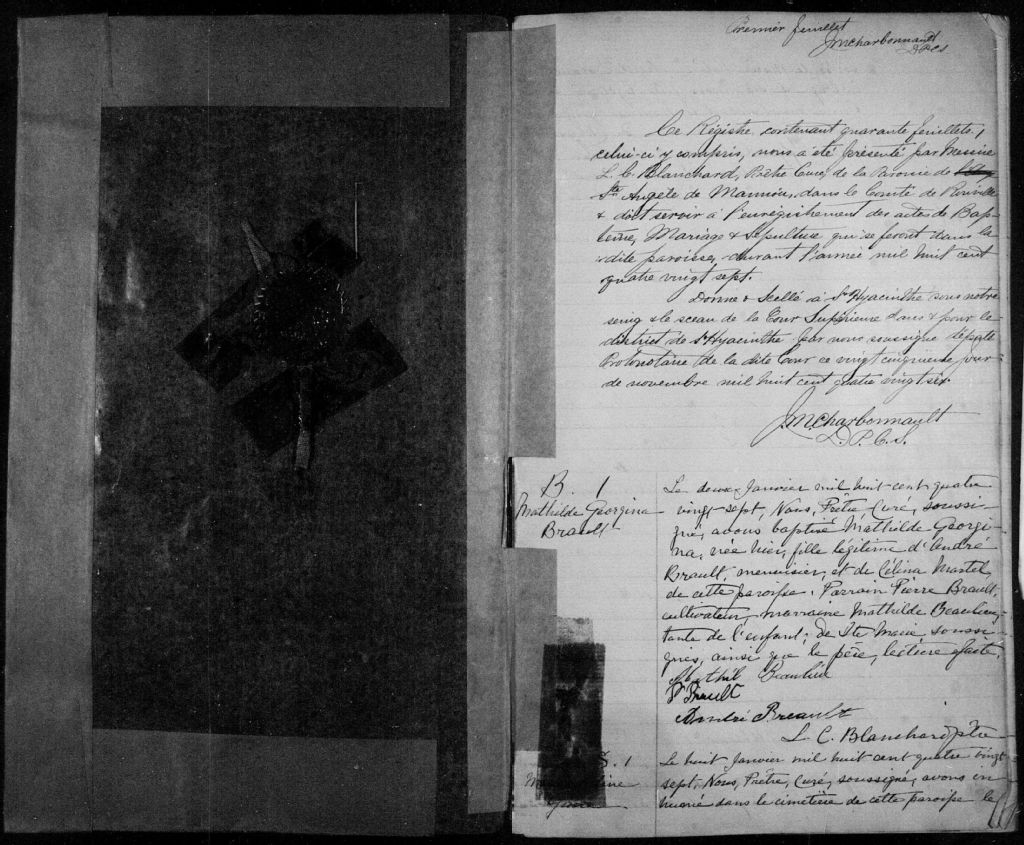 Premier feuillet
JMCharbonnault
DPCS
Ce Régistre contenant quarante feuillets,
celui-ci y compris, nous a été présenté par Messire
L. C. Blanchard, Prêtre Curé, de la Paroisse de
Ste Angèle de Monnoir, dans le Comté de Rouville
& doit servir à l'enrégistrement des actes de Bap-
tême, Mariage & Sépulture qui se feront dans la
dite paroisse, durant l'année mil huit cent
quatre vingt sept.
Donné & Scellé à St Hyacinthe sous notre
seing & le sceau de la Cour Supérieure dans & pour le
district de St Hyacinthe par nous soussigné député
Protonotaire de la dite Cour ce vingt cinquième jour
de novembre mil huit cent quatre vingt six.
JMCharbonnault
D. P. C. S.
B. 1
Mathilde Georgina
Brault
Le deux Janvier mil huit cent quatre
vingt-sept, Nous, Prêtre, Curé, soussi-
gné, avons baptisé Mathilde Georgi-
na, née hier, fille légitime d'André
Brault, menuisier, et de Célina Martel,
de cette paroisse. Parrain Pierre Brault,
cultivateur, marraine Mathilde Beaulieu,
tante de l'enfant, de Ste Marie, soussi-
gnés, ainsi que le père, lecture faite.
Mathil Beaulieu
P Brault
André Breault
L. C. Blanchard, Ptre
S. 1
Le huit Janvier mil huit cent quatre vingt
sept, Nous, Prêtre, Curé, soussigné, avons in
humé dans le cimetière de cette paroisse le